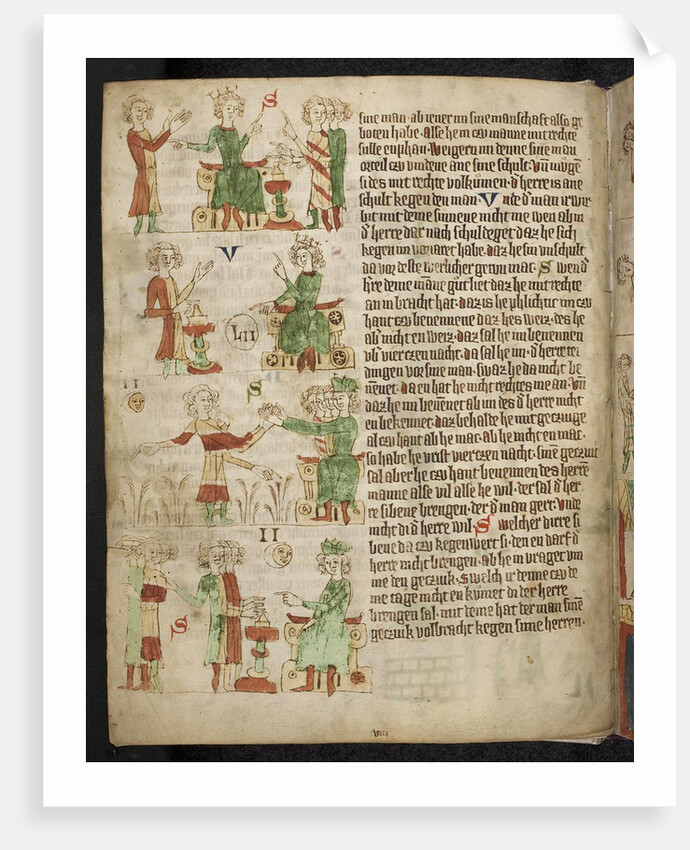 S
V
LII
II
S
II
S
sine man · ab iener im sine manschaft also ge
boten habe · Alse hem czu manne mit rechte
sulle enphan · Weigern im denne sine man
orteil czu vindene ane sine schult · Vn mugen
si des mit rechte volkumen · d herre is ane
schult kegen den man V nde d man
mit deme sinne nicht me wen ab in
d herre dar nach schuldeget daz he sich
kegen im habe · daz he sin vnschult
da vor deste werlicher gewin mac · S wen d
h're deme mane gut liet daz he mit rechte
an in bracht hat · daz is he phlichtic im czu
hant czu benennene daz hes weiz · des he
ab' nicht en weiz · daz sal he im benennen
vb' vierczen nacht · da sal he im · d herre tei
dingen vor sine man · swaz he da nicht be
nennet · da en hat he nicht rechtes me an · Vn
daz he im benennet ab im des d herre nicht
en bekennet · daz behalde he mit geczuge
al czu hant ab he mac · ab he nicht en mac ·
so habe he vrist vierczen nacht · sine geczuic
sal aber he czu hant benennen des herren
manne alse vil alse he wil · der sal d her
re sibene brengen · der d man gert · Vnde
nicht di d herre wil · S welcher dirre si
bene da czu kegenwert si · den en darf d
herre nicht brengen · ab he in vrager vm
me den geczuik · Swelch ir denne czu de
me tage nicht en kumet di der herre
brengen sal · mit deme hat der man sine
geczuik volbracht kegen sime herren ·